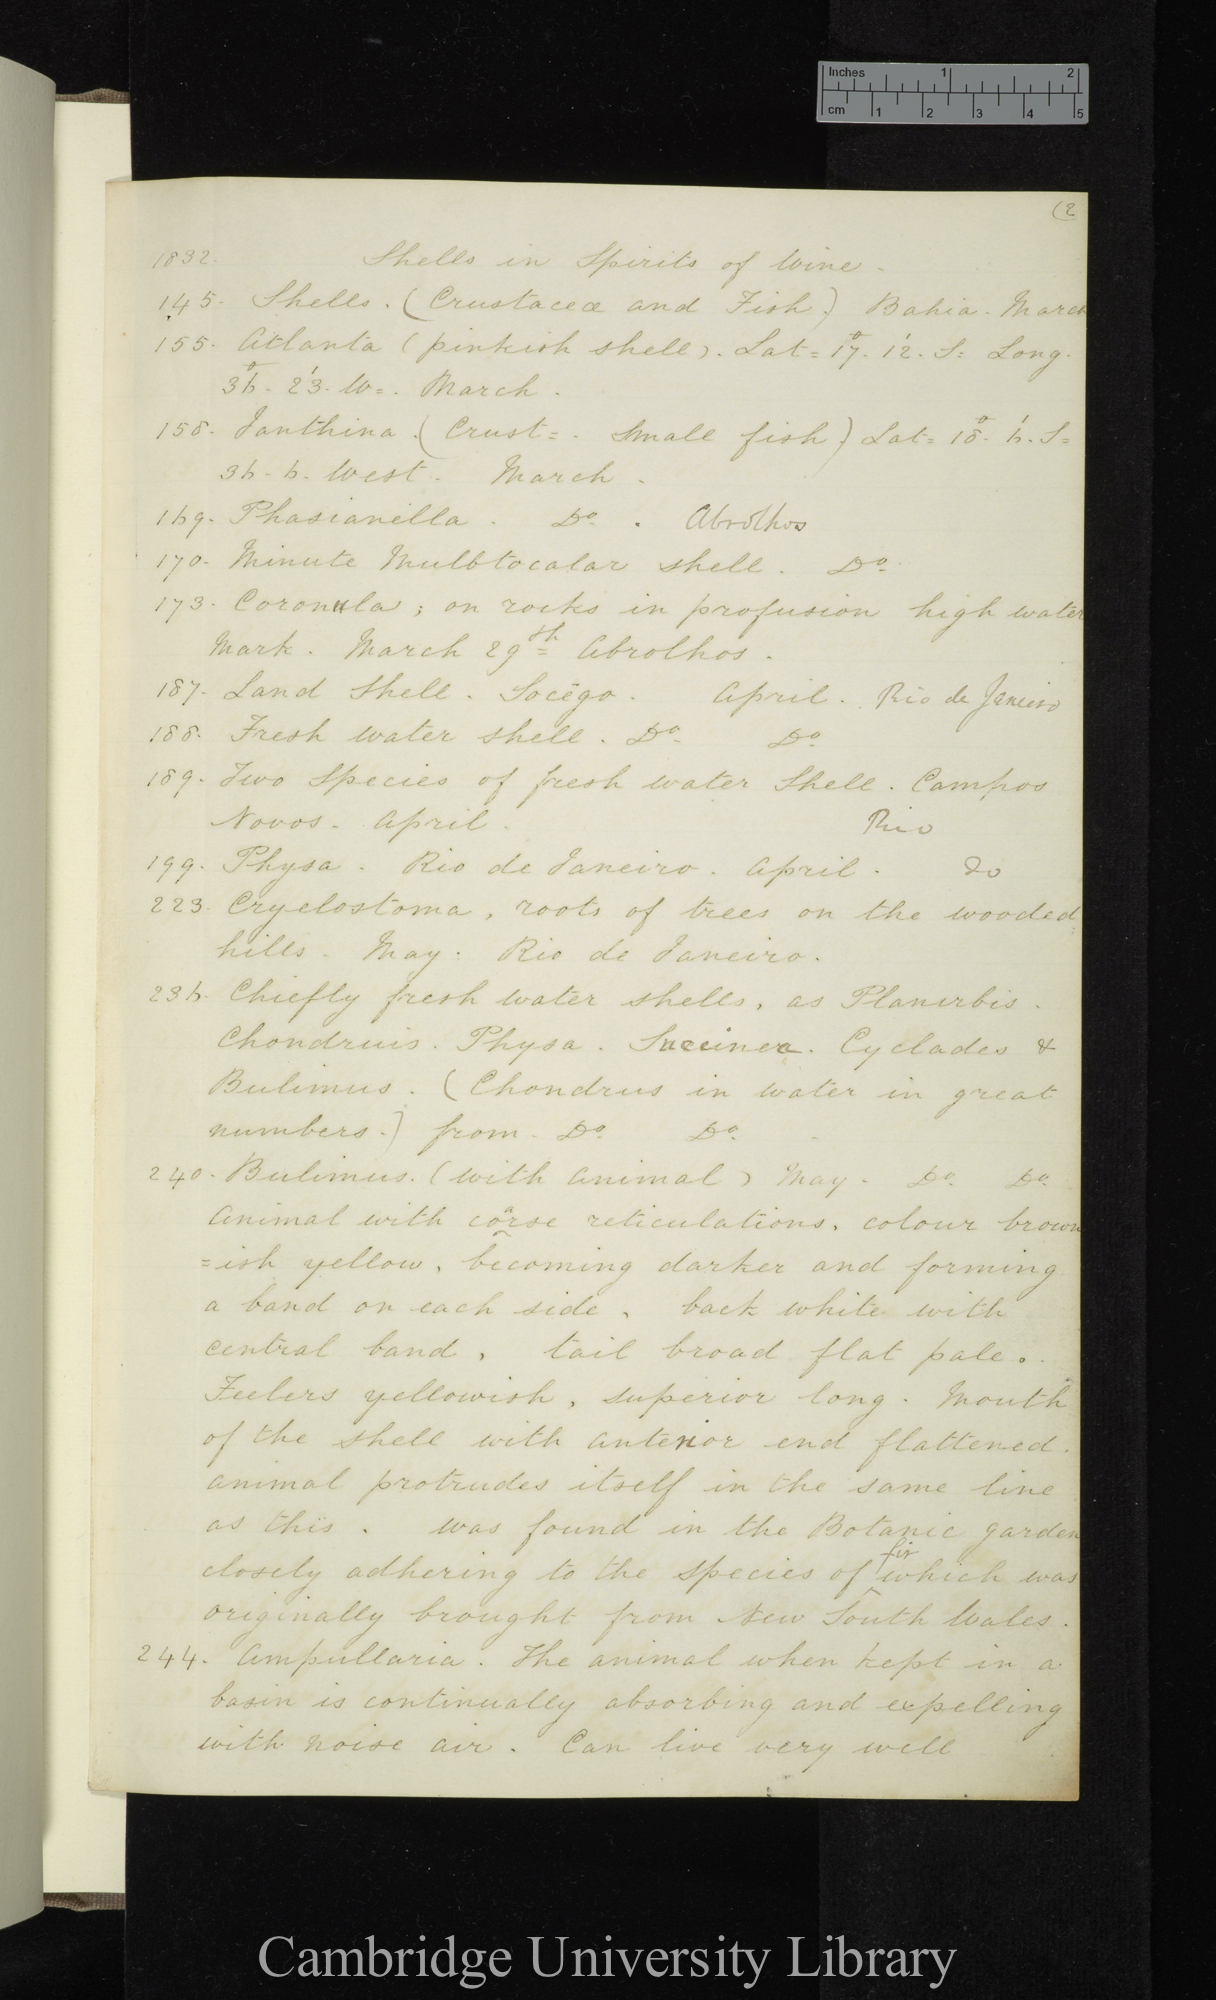 Inches 1 2
cm 1 2 3 4 5
(2
1832. Shells in Spirits of Wine.
145. Shells. (Crustaceæ and Fish.) Bahia. March
155. Atlanta (pinkish shell). Lat= 17°. 12'. S: Long.
36°. 23'. W=. March.
158. Janthina. (Crust=. Small fish) Lat= 18°. 6'. S=
36. 6. West. March.
169. Phasianella. Do. Abrolhos
170. Minute Mulbtocalar shell. Do.
173. Coronula; on rocks in profusion high water
Mark. March 29th= Abrolhos.
187. Land Shell. Socêgo. April. Rio de Janeiro
188. Fresh water shell. Do. Do.
189. Two Species of fresh water Shell. Campos
Novos. April. Rio
199. Physa. Rio de Janeiro. April. do
223. Cryclostoma, roots of trees on the wooded
hills. May. Rio de Janeiro.
236. Chiefly fresh water shells, as Planirbis.
Chondruis. Physa. Succinea. Cyclades &
Bulimus. (Chondrus in water in great
numbers.) from. Do. Do.
240. Bulimus. (with animal) May. Do. Do.
Animal with coarse reticulations, colour brown
=ish yellow, becoming darker and forming
a band on each side, back white with
central band, tail broad flat pale.
Feelers yellowish, superior long. Mouth
of the shell with anterior end flattened.
animal protrudes itself in the same line
as this. was found in the Botanic garden
closely adhering to the species of fir which was
originally brought from New South Wales.
244. Ampullaria. The animal when kept in a
basin is continually absorbing and expelling
with noise air. Can live very well
Cambridge University Library